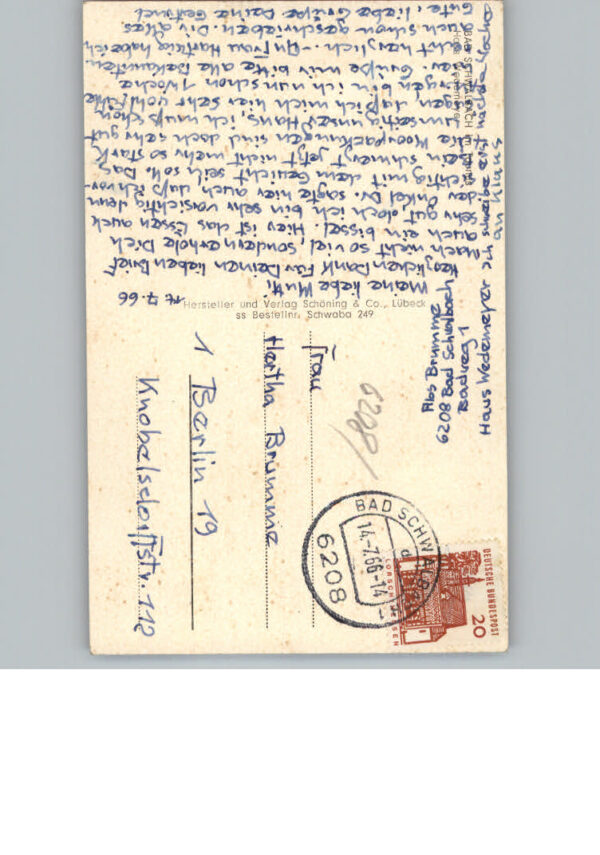 14.7.66
Meine liebe Mutti,
herzlichen Dank für Deinen lieben Brief.
Mach nicht so viel, sondern erhole Dich
auch ein bissel. Hier ist das Essen auch
sehr gut doch ich bin sehr vorsichtig denn
der Onkel Dr. sagte hier auch daß ich vor-
sichtig mit dem Gewicht sein soll. Das
Bein schmerzt jetzt nicht mehr so stark.
Die Moorpackungen sind doch sehr gut
unser Haus, ich muß schon
sagen, daß ich mich hier sehr wohl fühle
Morgen bin ich nun schon 1 Woche
hier. Grüße mir bitte alle Bekannten
recht herzlich. - An Frau Hartwig habe ich
auch schon geschrieben. Dir alles
Gute, liebe Grüße Deine
Ich schreibe erst nächste Woche
an Klaus
BAD SCHWALBACH im Taunus
Haus Wedemeyer
Hersteller und Verlag Schöning & Co., Lübeck
ss Bestellnr. Schwaba 249
Abs Brumme
6208 Bad Schwalbach
Badweg 1
Haus Wedemeyer
6208/
Frau
Hertha Brumme
1 Berlin 19
Knobelsdorffstr. 112
BAD SCHWALBACH
14.-7.66-14
6208
DEUTSCHE BUNDESPOST
20